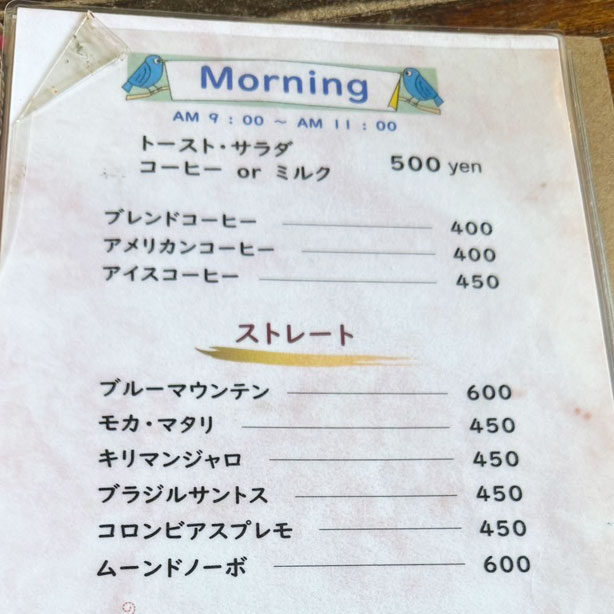 Morning
AM 9：00 ～ AM 11：00
トースト・サラダ
コーヒー or ミルク 500 yen
ブレンドコーヒー 400
アメリカンコーヒー 400
アイスコーヒー 450
ストレート
ブルーマウンテン 600
モカ・マタリ 450
キリマンジャロ 450
ブラジルサントス 450
コロンビアスプレモ 450
ムーンドノーボ 600